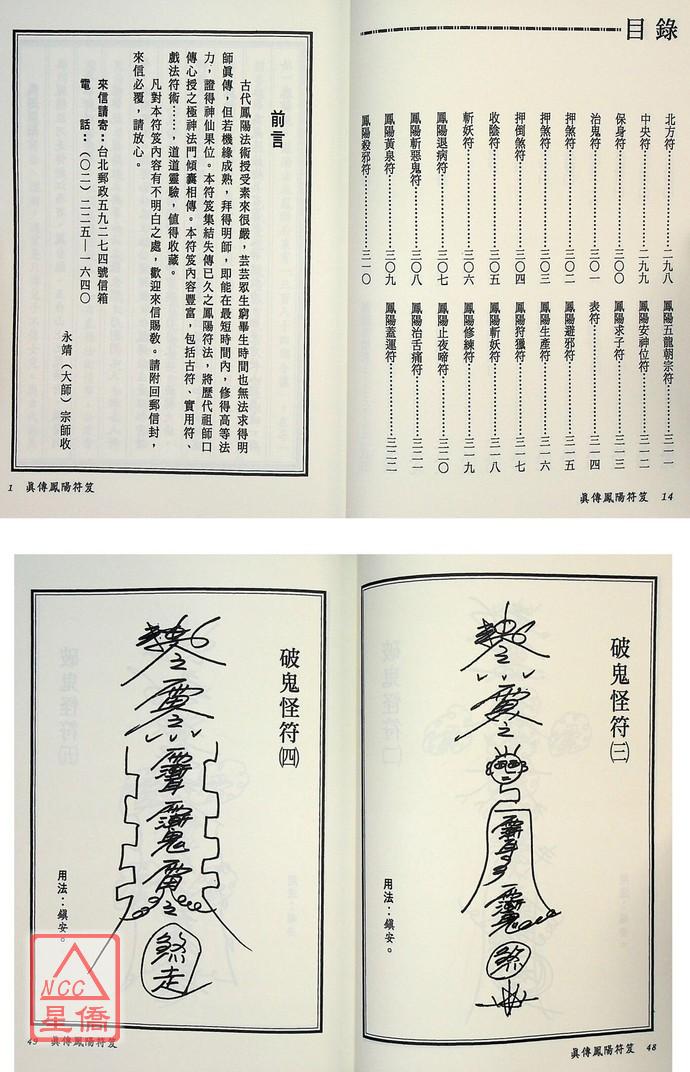 目錄
北方符⋯⋯二九八
中央符⋯⋯二九九
保身符⋯⋯三〇〇
治鬼符⋯⋯三〇一
押煞符⋯⋯三〇二
押煞符⋯⋯三〇三
押倒煞符⋯⋯三〇四
收陰符⋯⋯三〇五
斬妖符⋯⋯三〇六
鳳陽退病符⋯⋯三〇七
鳳陽斬惡鬼符⋯⋯三〇八
鳳陽黃泉符⋯⋯三〇九
鳳陽殺邪符⋯⋯三一〇
鳳陽五龍朝宗符⋯⋯三一一
鳳陽安神位符⋯⋯三一二
鳳陽求子符⋯⋯三一三
表符⋯⋯三一四
鳳陽避邪符⋯⋯三一五
鳳陽生產符⋯⋯三一六
鳳陽狩獵符⋯⋯三一七
鳳陽斬妖符⋯⋯三一八
鳳陽修練符⋯⋯三一九
鳳陽止夜啼符⋯⋯三二〇
鳳陽治舌痛符⋯⋯三二一
鳳陽蓋運符⋯⋯三二二
眞傳鳳陽符笈 14
前言
古代鳳陽法術授受素來很嚴，芸芸眾生窮畢生時間也無法求得明
師眞傳，但若機緣成熟，拜得明師，即能在最短時間內，修得高等法
力，證得神仙果位。本符笈集結失傳已久之鳳陽符法，將歷代祖師口
傳心授之極神法門傾囊相傳。本符笈內容豐富，包括古符、實用符、
戲法符術⋯⋯，道道靈驗，值得收藏。
凡對本符笈內容有不明白之處，歡迎來信賜教。請附回郵信封，
來信必覆，請放心。
來信請寄：台北郵政五九—二七四號信箱
電　話：（〇二）二二五—一六四〇
永靖（大師）宗師收
1 眞傳鳳陽符笈
破鬼怪符㈢
用法：鎮安。
煞
眞傳鳳陽符笈 48
破鬼怪符㈣
用法：鎮安。
煞走
49 眞傳鳳陽符笈
NCC
星僑